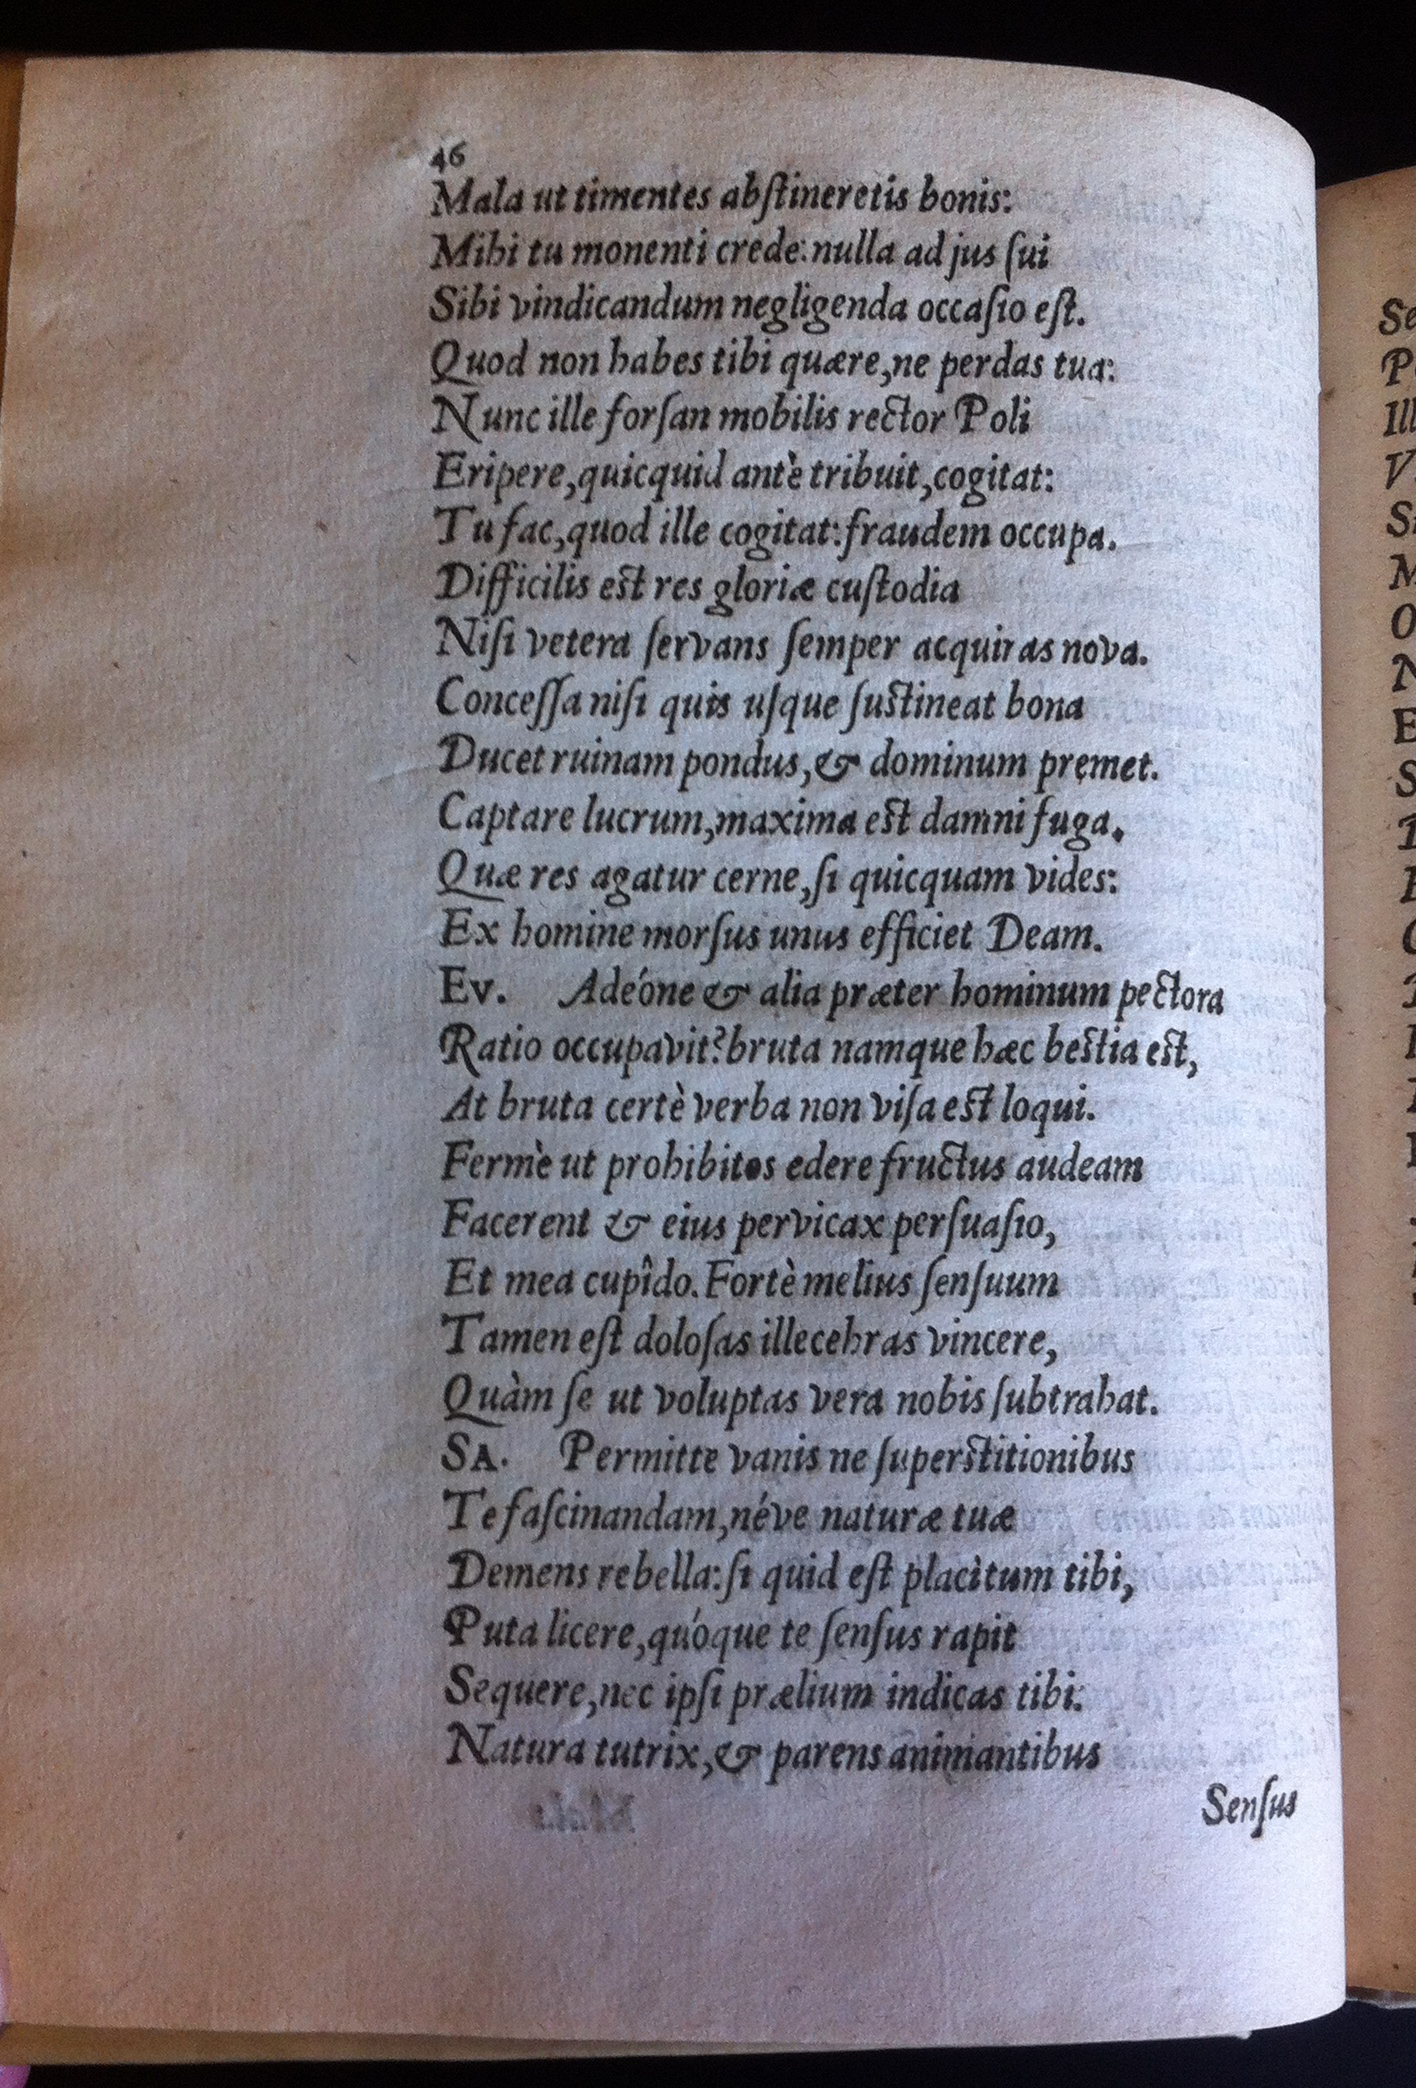 46
Mala ut timentes abſtineretis bonis:
Mihi tu monenti crede: nulla ad jus ſui
Sibi vindicandum negligenda occaſio eſt.
Quod non habes tibi quære, ne perdas tua:
Nunc ille forſan mobilis rector Poli
Eripere, quicquid antè tribuit, cogitat:
Tu fac, quod ille cogitat: fraudem occupa.
Difficilis eſt res gloriæ cuſtodia
Niſi vetera ſervans ſemper acquiras nova.
Conceſſa niſi quis uſque ſuſtineat bona
Ducet ruinam pondus, & dominum premet.
Captare lucrum, maxima eſt damni fuga.
Quæ res agatur cerne, ſi quicquam vides:
Ex homine morſus unus efficiet Deam.
Ev. Adeóne & alia præter hominum pectora
Ratio occupavit? bruta namque hæc beſtia eſt,
At bruta certè verba non viſa eſt loqui.
Fermè ut prohibitos edere fructus audeam
Facerent & eius pervicax perſuaſio,
Et mea cupîdo. Fortè melius ſenſuum
Tamen eſt doloſas illecebras vincere,
Quàm ſe ut voluptas vera nobis ſubtrahat.
SA. Permitte vanis ne ſuperſtitionibus
Te faſcinandam, néve naturæ tuæ
Demens rebella: ſi quid eſt placitum tibi,
Puta licere, quóque te ſenſus rapit
Sequere, nec ipſi prælium indicas tibi.
Natura tutrix, & parens animantibus
Senſus
Se
P
Ill
V
S
M
O
N
E
S